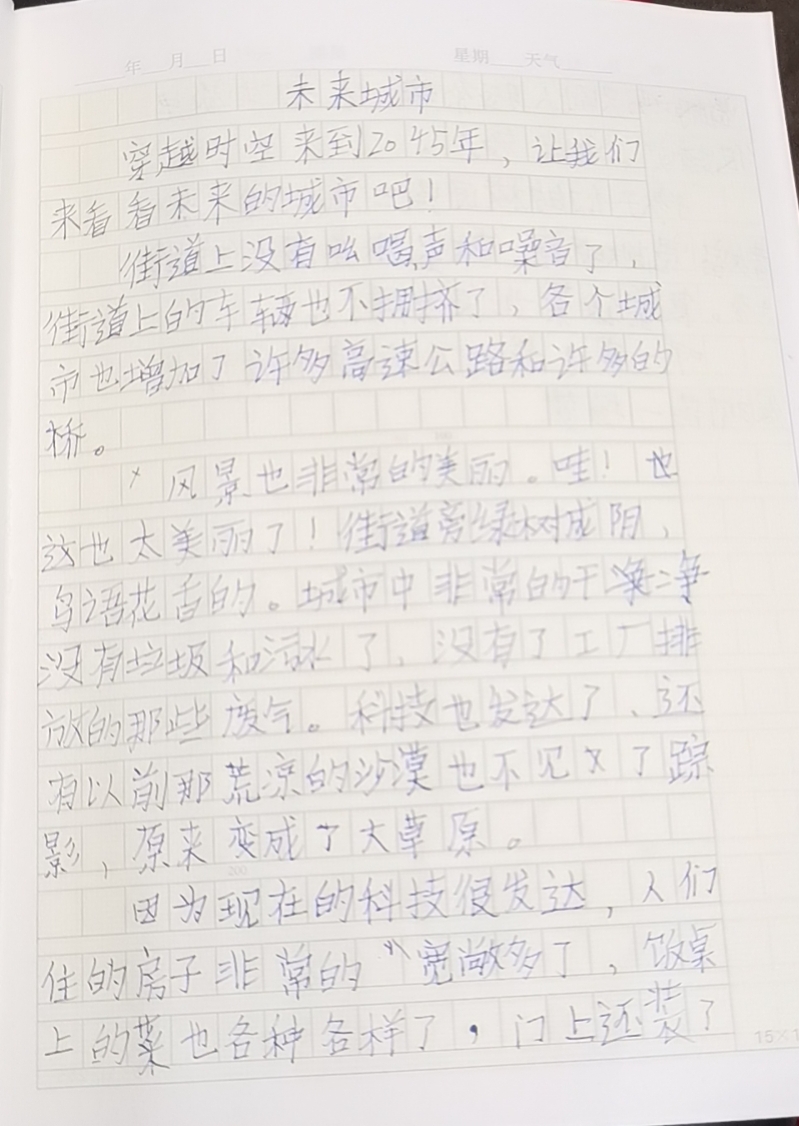 年 月 日 星期 天气
未来城市
穿越时空来到2045年，让我们
来看看未来的城市吧！
街道上没有吆喝声和噪音了，
街道上的车辆也不拥挤了，各个城
市也增加了许多高速公路和许多的
桥。
风景也非常的美丽。哇！也
这也太美丽了！街道旁绿树成阴，
鸟语花舌的。城市中非常的干净净
没有垃圾和污水了，没有了工厂排
放的那些废气。科技也发达了、还
有以前那荒凉的沙漠也不见了踪
影，原来变成了大草原。
因为现在的科技很发达，人们
住的房子非常的宽敞多了，饭桌
上的菜也各种各样了，门上还装了